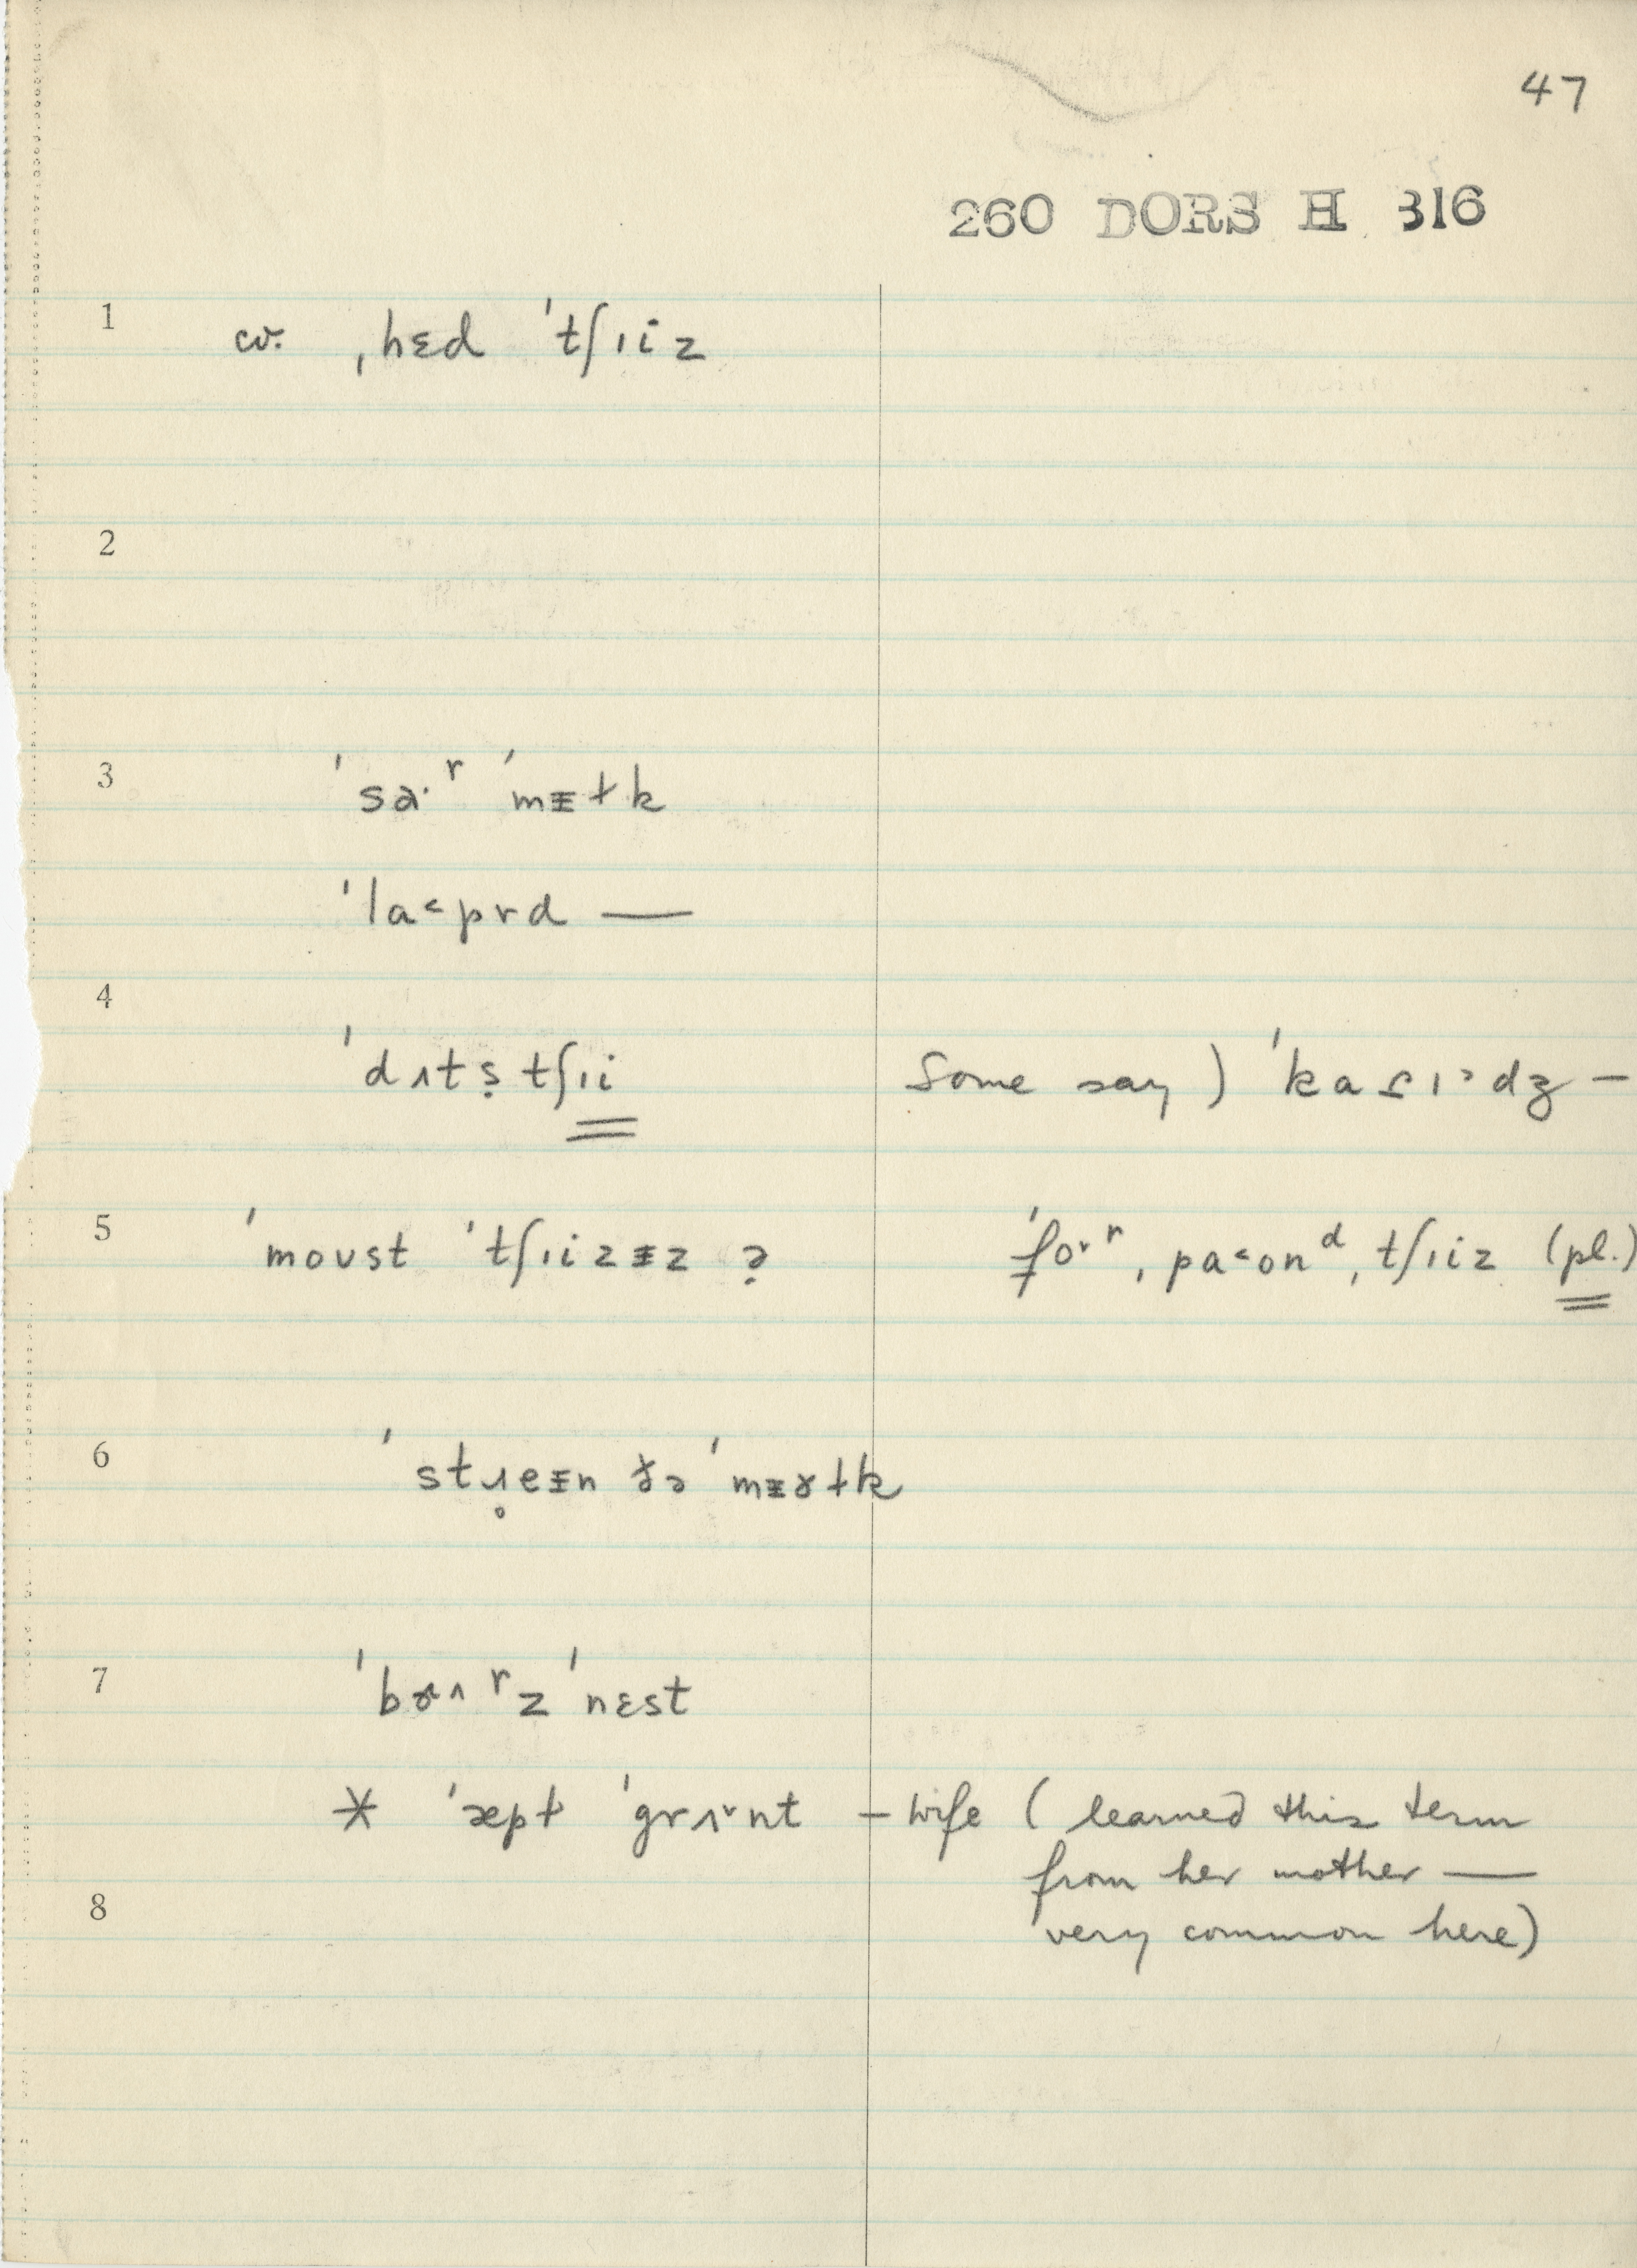 47
260 DORS H 316
1 cv. ˌhɛd ˈtʃıiz
2
3 ˈsɑ·ʳ ˈmɪ̵ɫk
ˈla˂pɚd —
4
ˈdʌtṣ tʃıi Some say) ˈka ı˃dz̡ —
5 ˈmoʊst ˈtʃıizɪ̵z ? ˈfo˞ʳ ˌpa˂onᵈ ˌtʃıiz (pl.)
6 ˈstɹ̥eɪ̵n ðə ˈmɪ̵ɤɫk
7 ˈbɜ˄ʳz ˈnɛst
* ˈæpɫ ˈgrʌ˅nt – wife (learned this term
from her mother —
8 very common here)